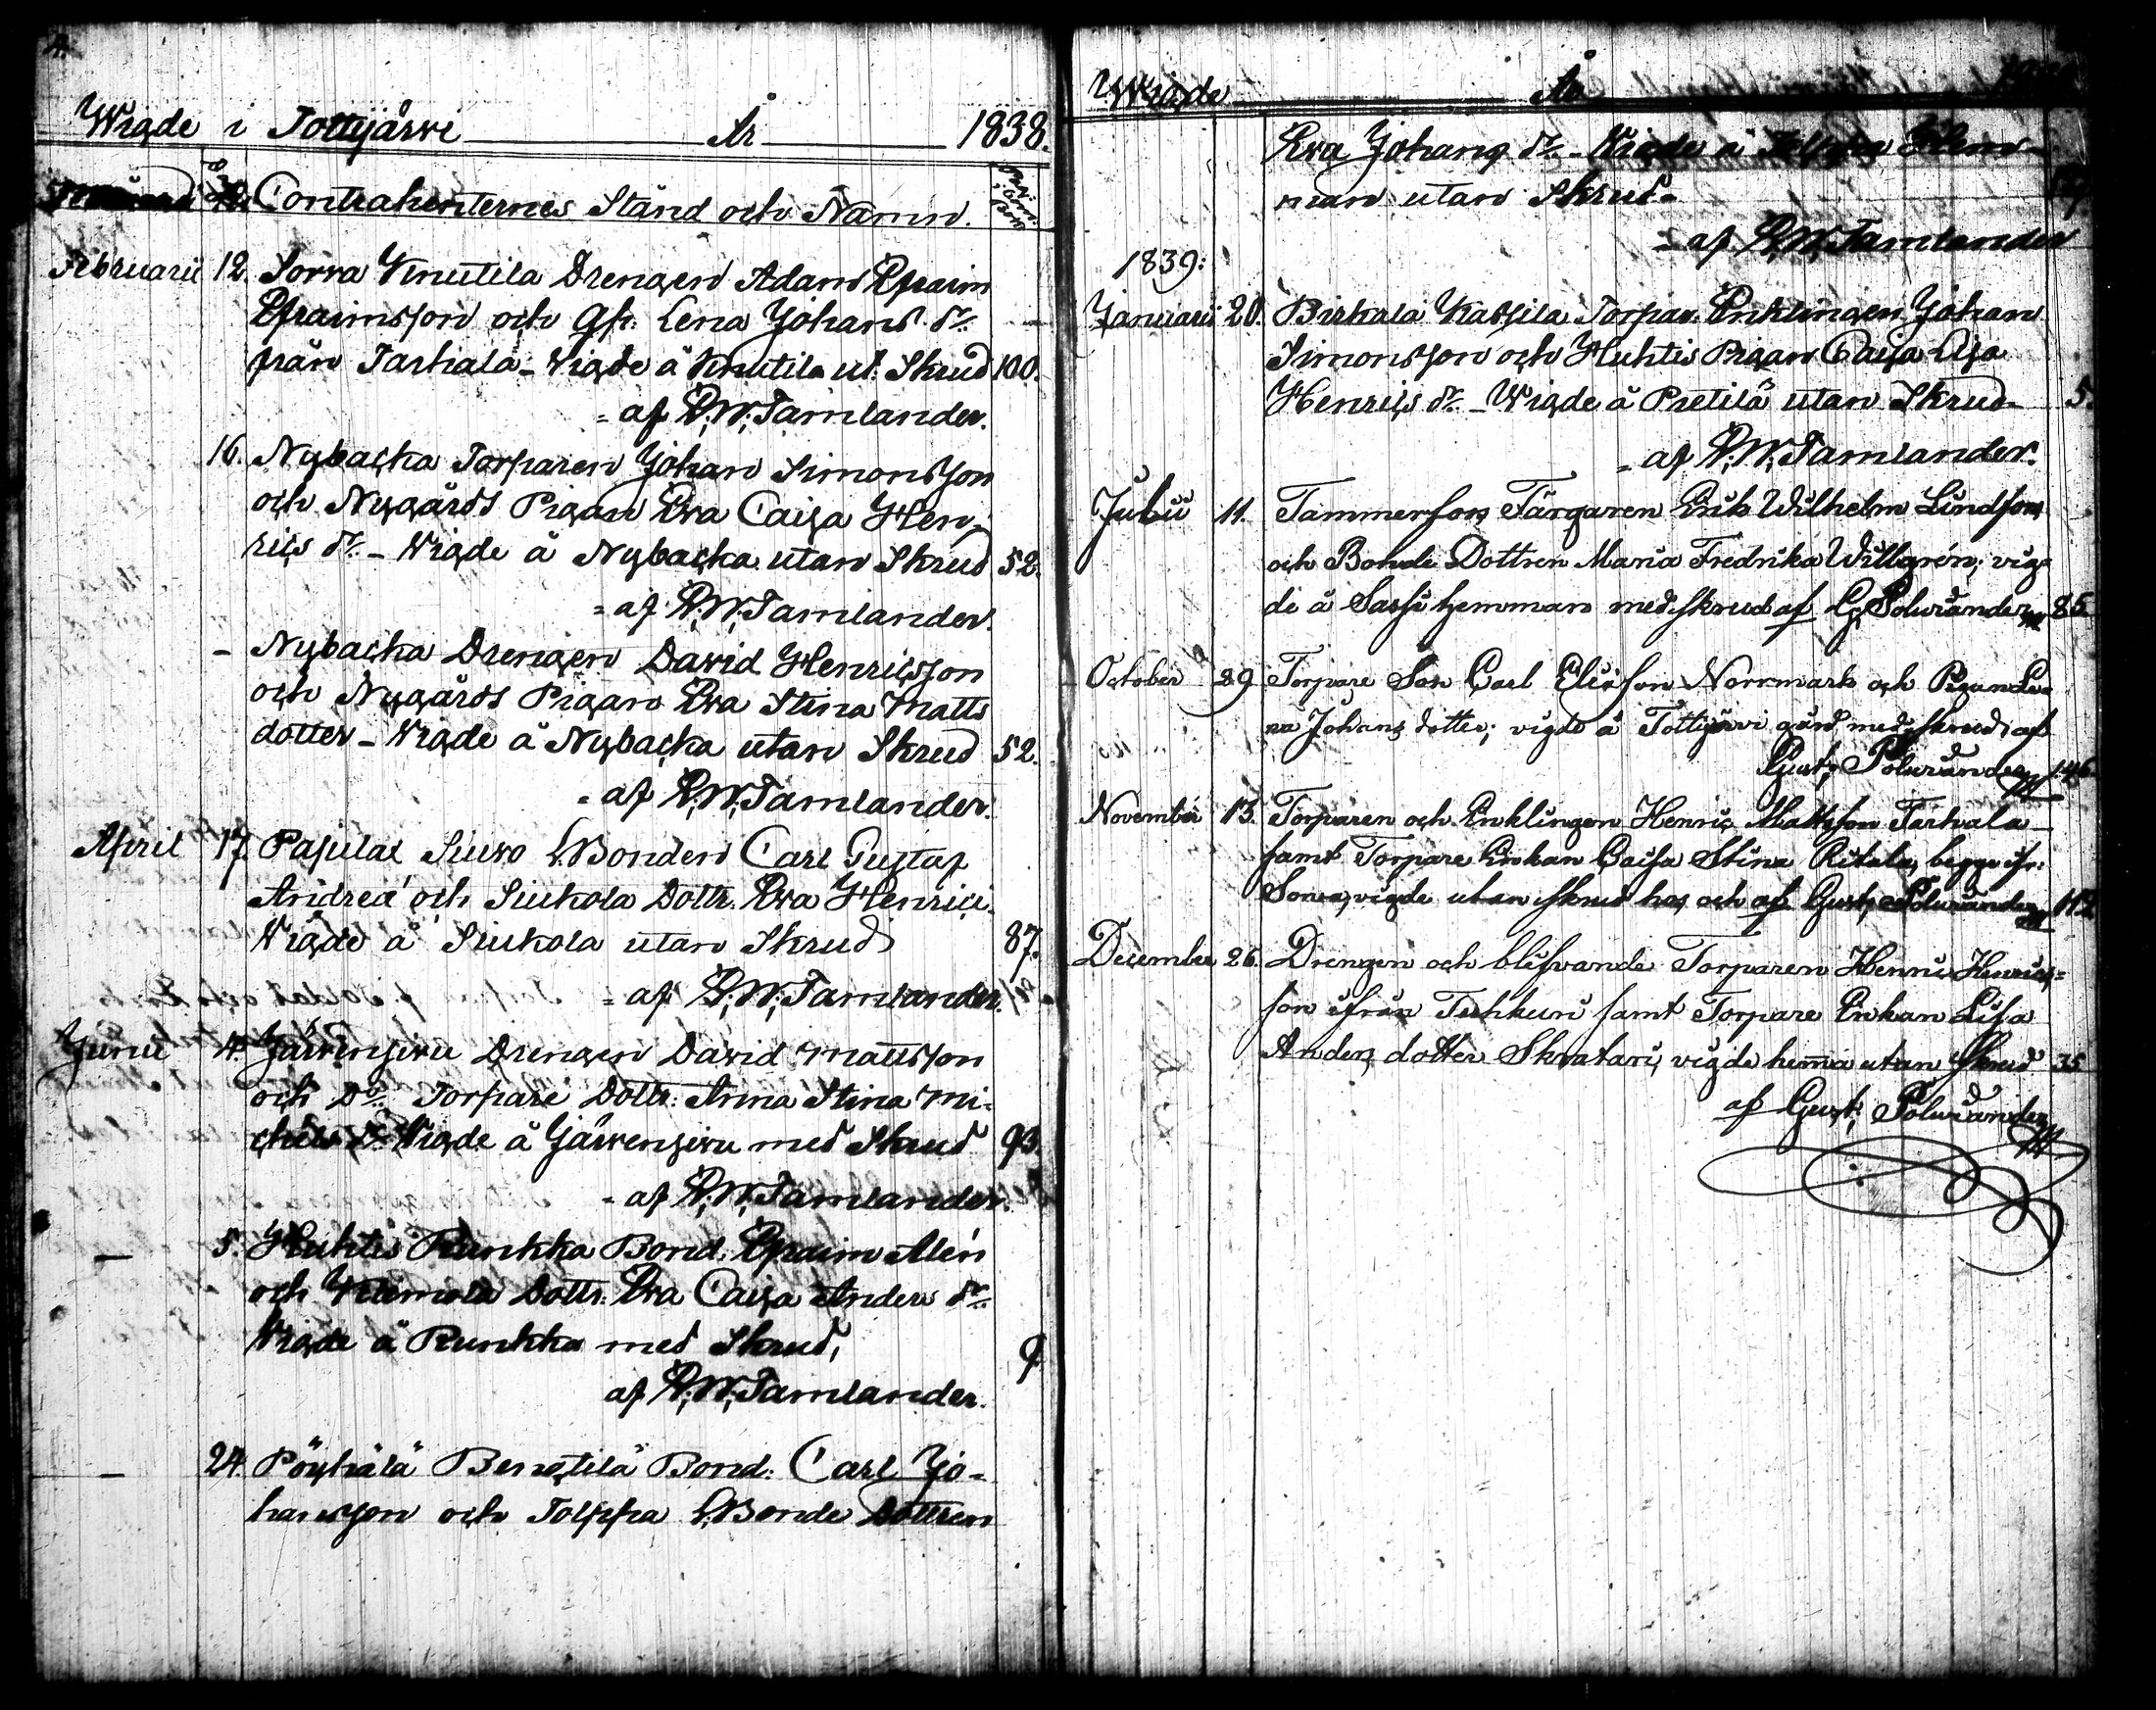 Wigde i Tottijärvi År 1838.
Contrahenternes Stånd och Namn.
Februarii 12. Sorva Knutila Drengen Adam Efraim
Efraimsson och Gh. Lena Johans dr.
från Tarhala - Wigde å Knutila ut. Skrud 100.
- af P. W. Tamlander.
16. Nybacka Torparen Johan Simonsson
och Nygårds Pigan Eva Caisa Hen-
rics dr. - Wigde å Nybacka utan Skrud 52.
- af P. W. Tamlander.
- Nybacka Drengen David Henricsson
och Nygårds Pigan Eva Stina Matts
dotter - Wigde å Nybacka utan Skrud 52.
- af P. W. Tamlander.
April 17. Pajulax Siuro L.Bonden Carl Gustaf
Andreæ och Siukola Dottr. Eva Henrici.
Wigde å Siukola utan Skrud 87.
- af P. W. Tamlander.
Junii 4. Järvensivu Drengen David Mattsson
och Do. Torpare Dottr. Anna Stina Mi-
chels dr. Wigde å Järvensivu med Skrud 93.
- af P. W. Tamlander.
- 5. Huhtis Runkka Bond. Efraim Alén
och Dottr. Eva Caisa Anders dr.
Wigde å Runkka med Skrud, 9
af P. W. Tamlander.
- 24. Pöyhälä Bengtilä Bond. Carl Jo-
hansson och Tolppa L.Bonde Dottren
Wigde År
Eva Johans dr. - Wigde å Tolppa Hem-
man utan Skrud -
- af P. W. Tamlander
1839:
Januarii 20. Birkala Torpar. Enklingen Johan
Simonsson och Huhtis Pigan Caisa Lisa
Henrics dr. - Wigde å Pietilä utan Skrud - 5.
- af P. W. Tamlander.
Julii 11. Tammerfors Färgaren Erik Wilhelm Lindfors
och Bonde Dottren Maria Fredrika Willgrén; vig-
de å Sassi hemman med skrud af G. Polviander 85
October 29 Torpare Son Carl Ericsson Norrmark och Pigan Le-
na Johans dotter; vigde å Tottijärvi gård med skrud af
Gust. Polviander 146
November 13. Torparen och Enklingen Henric Mattsson Tarhala
samt Torpare Enkan Caisa Stina Ritala, begge ifr.
Sorva, vigde utan skrud hos och af Gust. Polviander 112
December 26. Drengen och blifvande Torparen Henric Henrics-
son ifrån Tuhkuri samt Torpare Enkan Lisa
Anders dotter Skratari, vigde hemma utan skrud 35
af Gust. Polviander